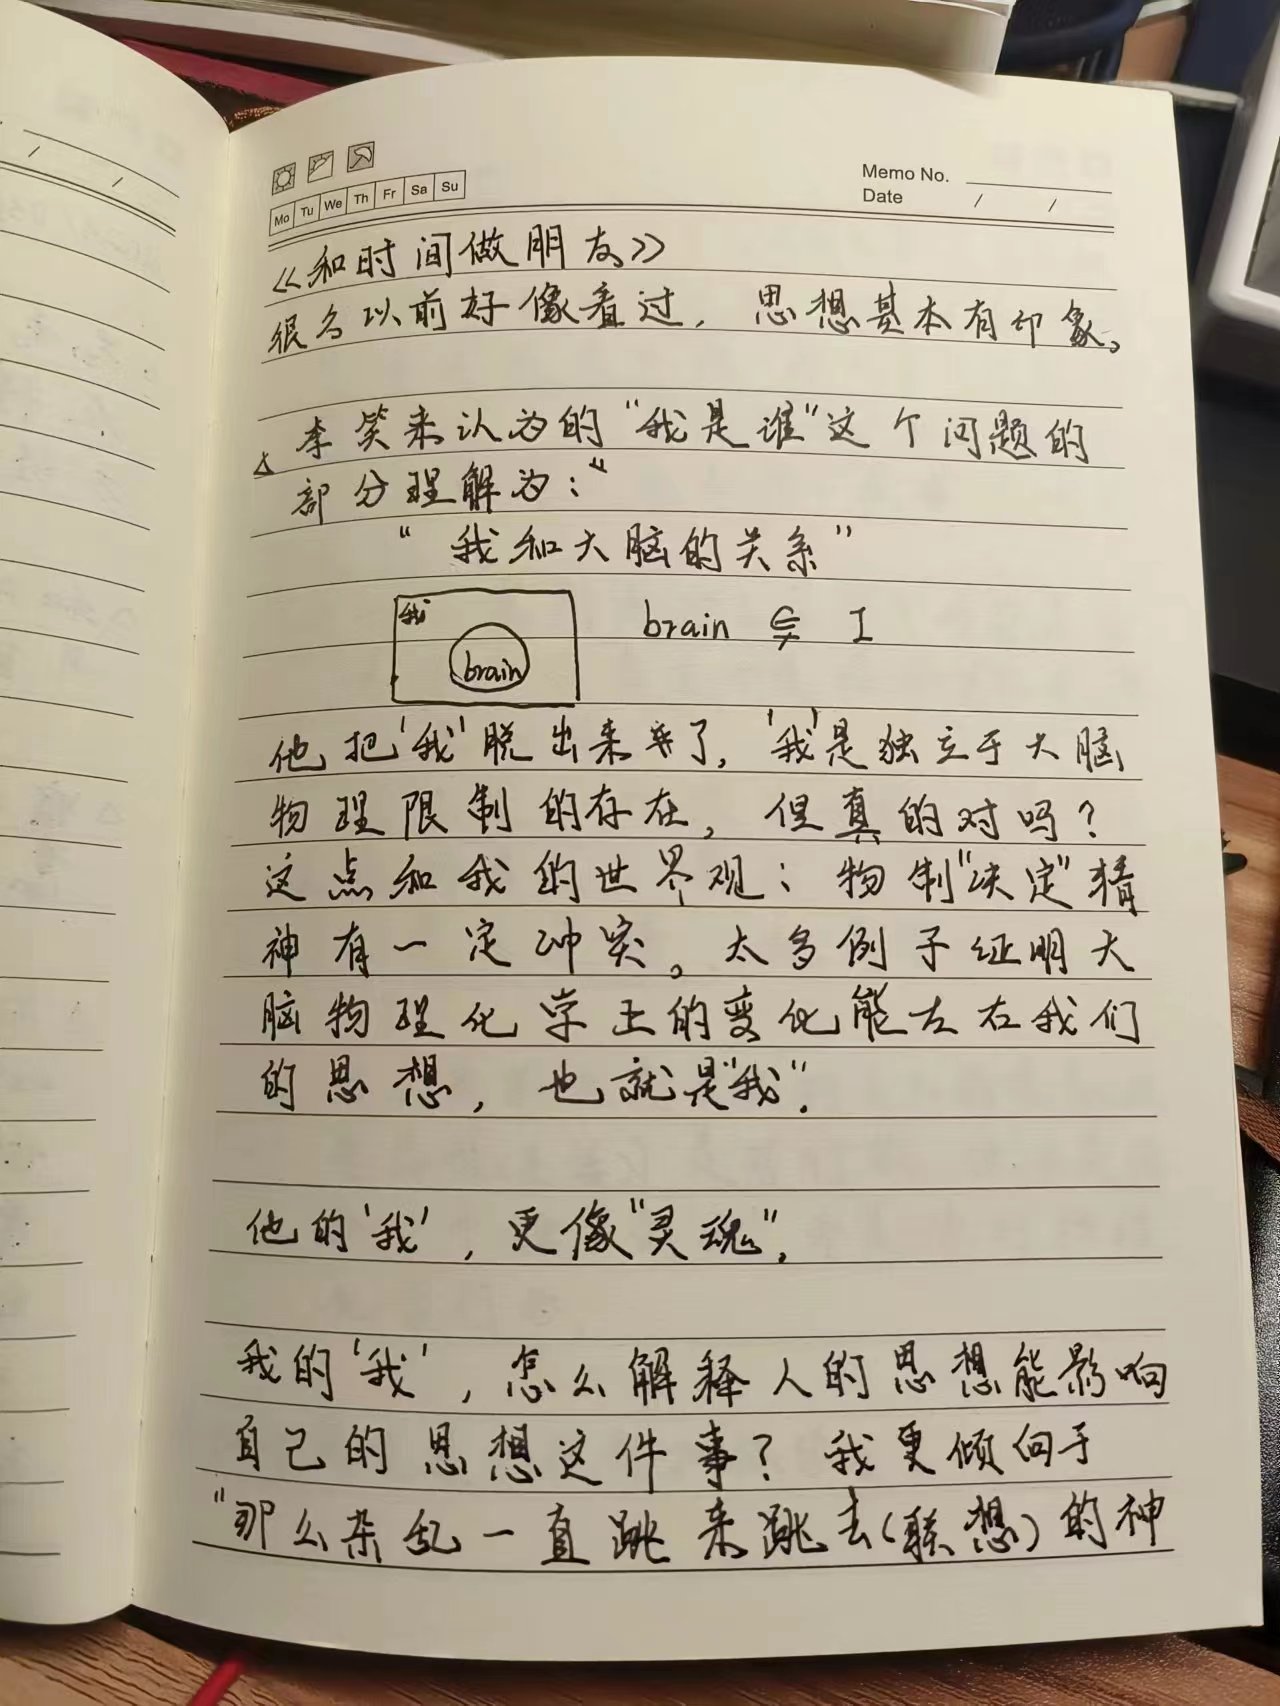 Memo No.
Date / /
Mo Tu We Th Fr Sa Su
《和时间做朋友》
很多以前好像看过，思想基本有印象。
李笑来认为的"我是谁"这个问题的
部分理解为："
"我和大脑的关系"
我
brain
brain ⊊ I
他把'我'脱出来来了，'我'是独立于大脑
物理限制的存在，但真的对吗？
这点和我的世界观：物制"决定"精
神有一定冲突。太多例子证明大
脑物理化学上的变化能左右我们
的思想，也就是"我"。
他的'我'，更像"灵魂"。
我的'我'，怎么解释人的思想能影响
自己的思想这件事？我更倾向于
"那么杂乱一直跳来跳去(联想)的神